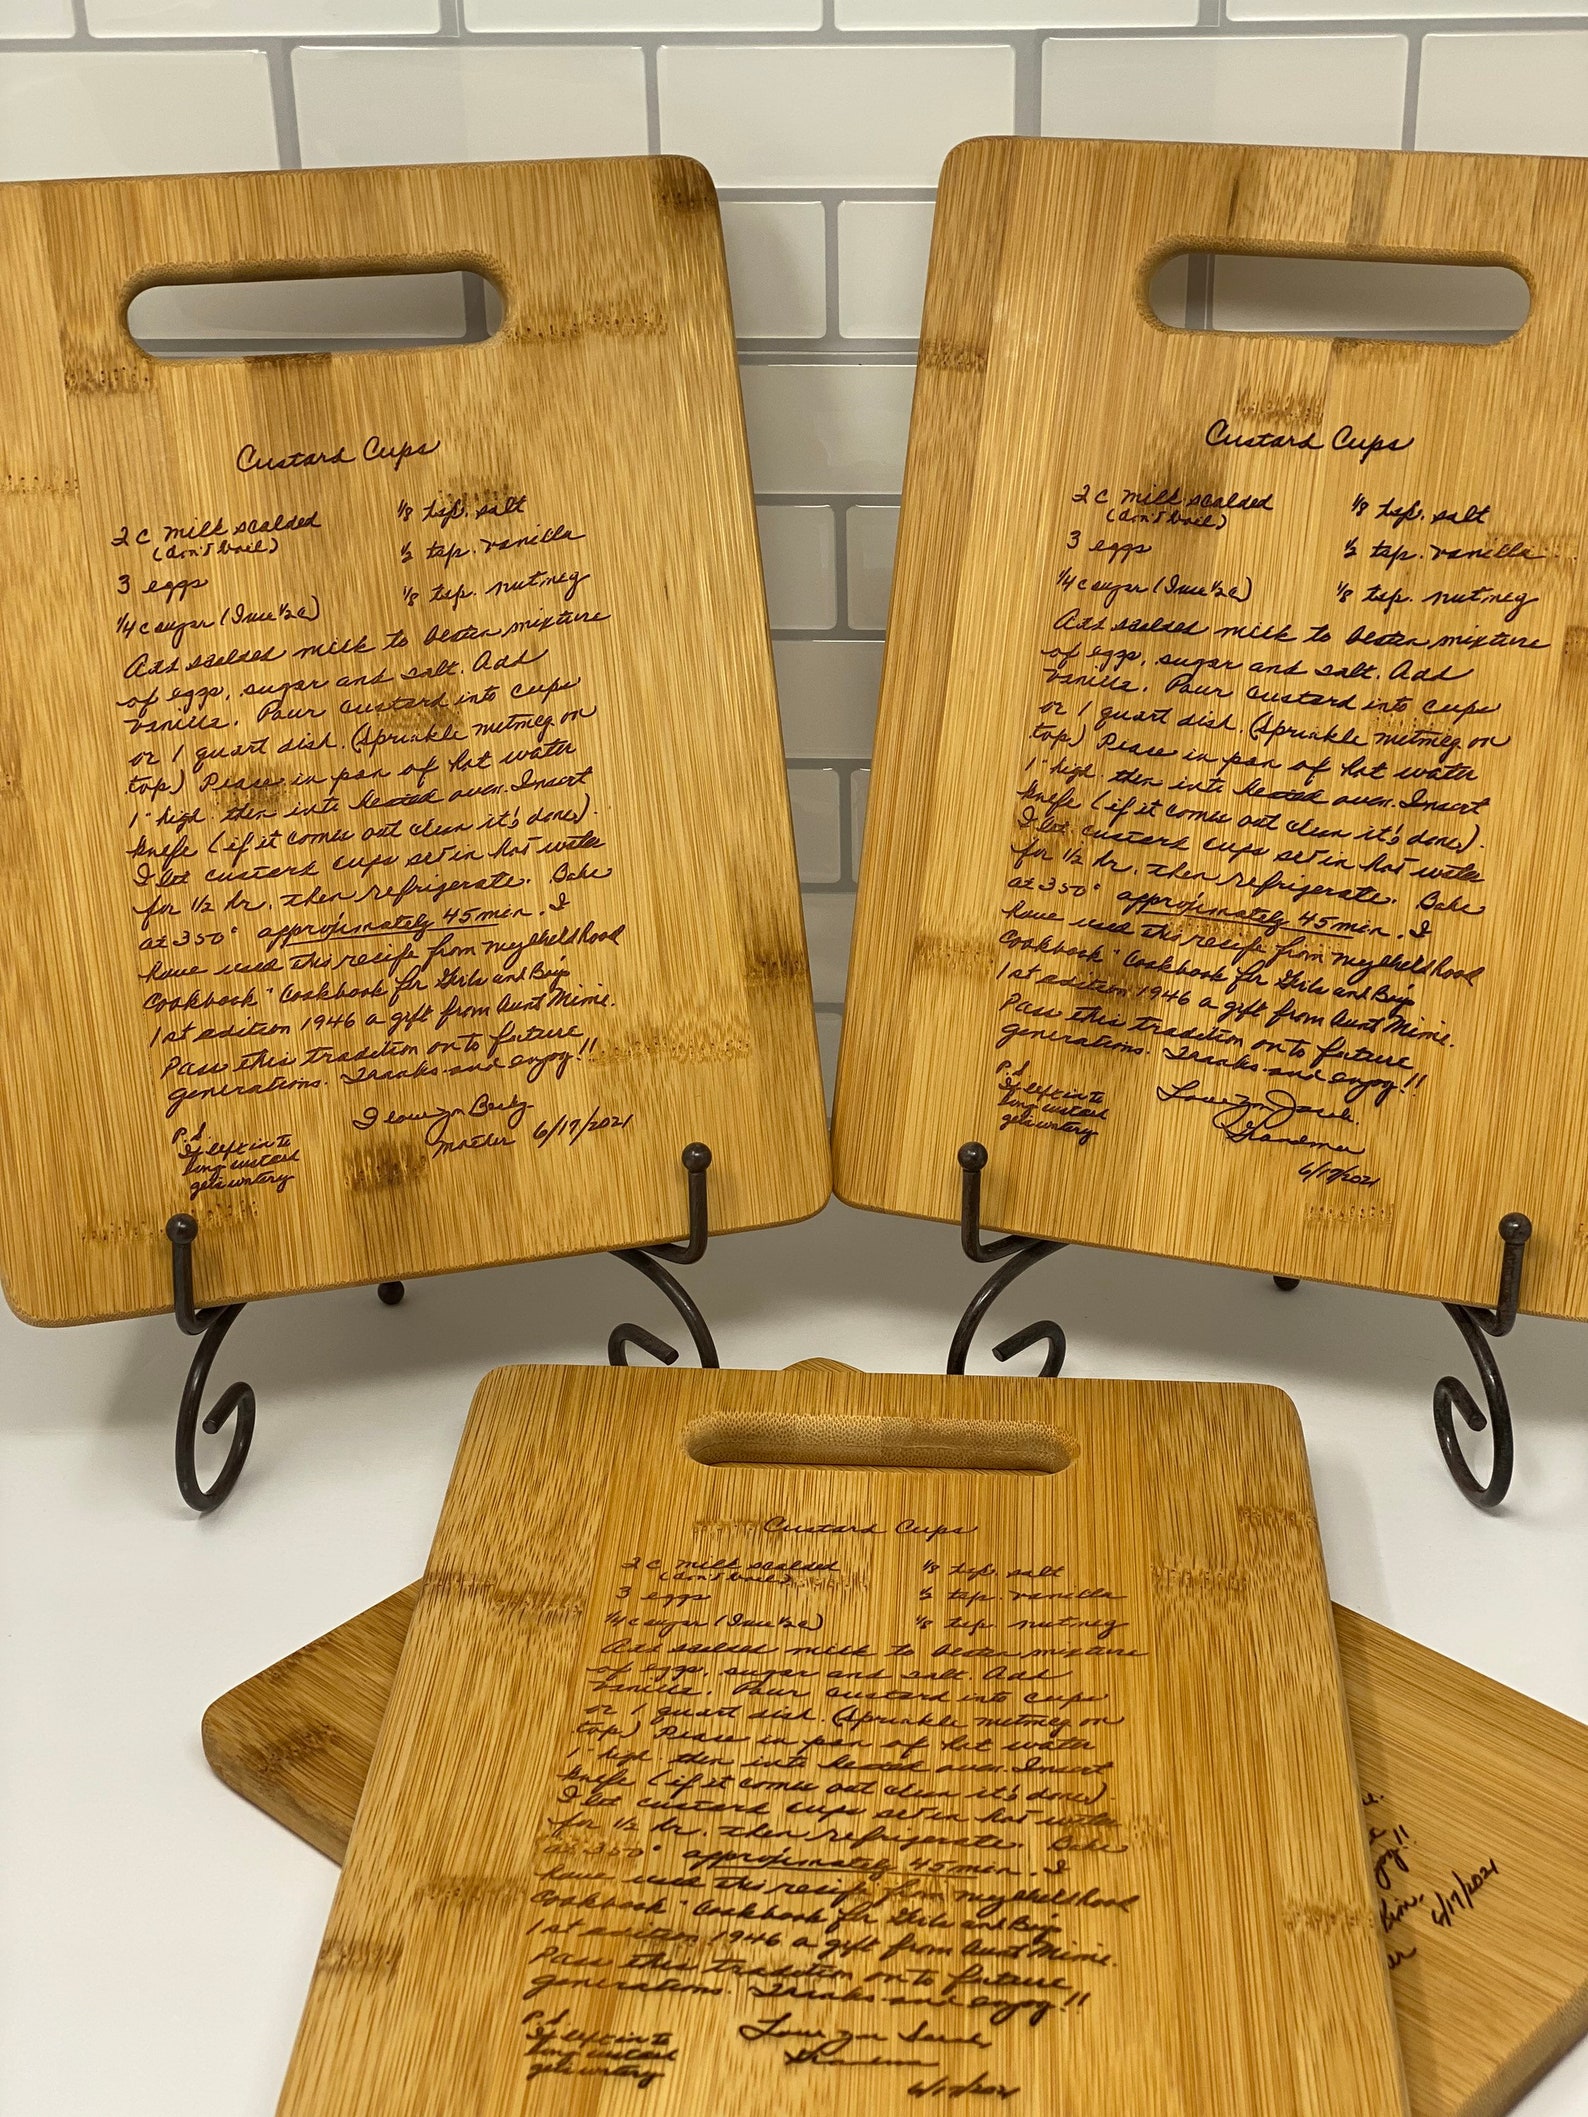 Custard Cups
2 c milk scalded
(don't boil)
3 eggs
1/4 c sugar (I use 1/2 c)
1/8 tsp. salt
1/2 tsp. vanilla
1/8 tsp. nutmeg
Add scalded milk to beaten mixture
of eggs, sugar and salt. Add
vanilla. Pour custard into cups
or 1 quart dish. (Sprinkle nutmeg on
top) Place in pan of hot water
1" high. then into heated oven. Insert
knife (if it comes out clean it's done).
I let custard cups set in hot water
for 1/2 hr. then refrigerate. Bake
at 350° approximately 45 min. I
have used this recipe from my childhood
Cookbook "Cookbook for Girls and Boys
1st edition 1946 a gift from Aunt Mimie.
Pass this tradition on to future
generations. Thanks and enjoy!!
P.S.
If left in to
long custard
gets watery
I love you Becky
Mother 6/17/2021
Custard Cups
2 c milk scalded
(don't boil)
3 eggs
1/4 c sugar (I use 1/2 c)
1/8 tsp. salt
1/2 tsp. vanilla
1/8 tsp. nutmeg
Add scalded milk to beaten mixture
of eggs, sugar and salt. Add
vanilla. Pour custard into cups
or 1 quart dish. (Sprinkle nutmeg on
top) Place in pan of hot water
1" high. then into heated oven. Insert
knife (if it comes out clean it's done).
I let custard cups set in hot water
for 1/2 hr. then refrigerate. Bake
at 350° approximately 45 min. I
have used this recipe from my childhood
Cookbook "Cookbook for Girls and Boys
1st edition 1946 a gift from Aunt Mimie.
Pass this tradition on to future
generations. Thanks and enjoy!!
P.S.
If left in to
long custard
gets watery
Love you
Grandma
6/17/2021
Custard Cups
2 c milk scalded
(don't boil)
3 eggs
1/4 c sugar (I use 1/2 c)
1/8 tsp. salt
1/2 tsp. vanilla
1/8 tsp. nutmeg
Add scalded milk to beaten mixture
of eggs, sugar and salt. Add
vanilla. Pour custard into cups
or 1 quart dish. (Sprinkle nutmeg on
top) Place in pan of hot water
1" high. then into heated oven. Insert
knife (if it comes out clean it's done).
I let custard cups set in hot water
for 1/2 hr. then refrigerate. Bake
at 350° approximately 45 min. I
have used this recipe from my childhood
Cookbook "Cookbook for Girls and Boys
1st edition 1946 a gift from Aunt Mimie.
Pass this tradition on to future
generations. Thanks and enjoy!!
P.S.
If left in to
long custard
gets watery
Love you Sarah
Grandma
6/17/2021
6/17/2021